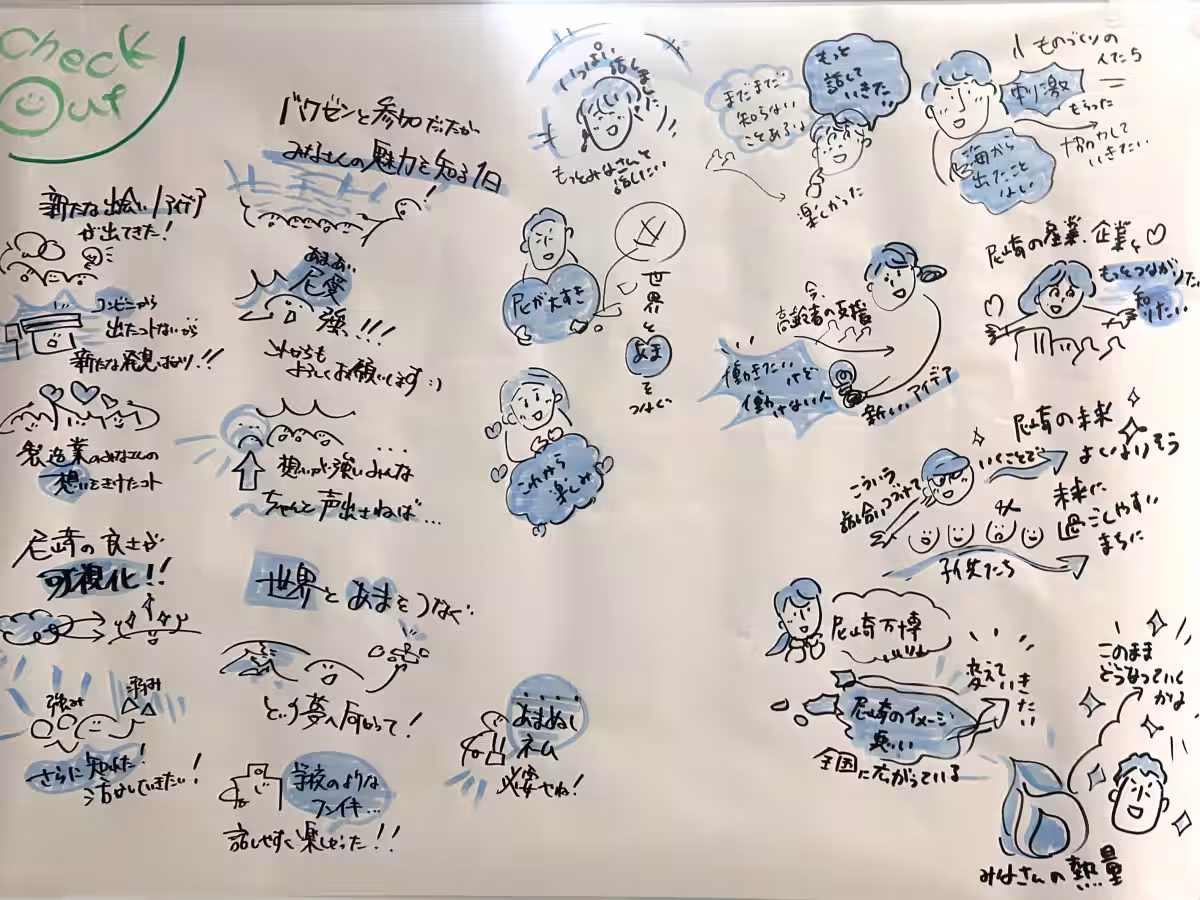 Check
Out
新たな出会い/アイデア
が出てきた!
コンビニから
出たコトないから
新たな発見ばかり!!
製造業のみなさんの
想いをきけたコト
尼崎の良さが
可視化!!
強み
弱み
さらに知れた!
活かしていきたい!
バクゼンと参加だったが
みなさんの魅力を知る1日
あまあい
尼愛
強!!!
これからも
よろしくお願いします:)
想いが強いみんな
ちゃんと声出さねば…
世界とあまをつなぐ
という夢へ向かって!
学校のような
フンイキ…
話しやすく楽しかった!!
いっぱい話しました!!
もっとみなさんと
話したい
尼が大すき
世界と
あま
をつなぐ
これから
楽しみ
あまぬし
ネム
必要やね!
まだまだ
知らない
ことあるな
もっと
話して
いきた
楽しかった
ものづくりの
人たち
刺激
もらった
活かして
いきたい
出たこと
ない
尼崎の産業、企業を♡
もっとつながりたい
知りたい
今、
高齢者の支援
働きたいけど
働けない人
新しいアイデア
尼崎の未来
よくなりそう
こういう
話し合いつづけて
いくことで
未来に
過ごしやすい
まちに
子供たち
尼崎万博
変えて
いき
たい
尼崎のイメージ
悪い
全国に広がっている
このまま
どうなっていく
かな
みなさんの熱量